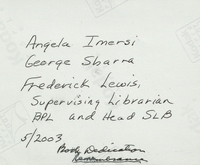 Angela Imersi
George Sbarra
Frederick Lewis,
Supervising Librarian
BPL and Head SLB
5/2003
Book Dedication